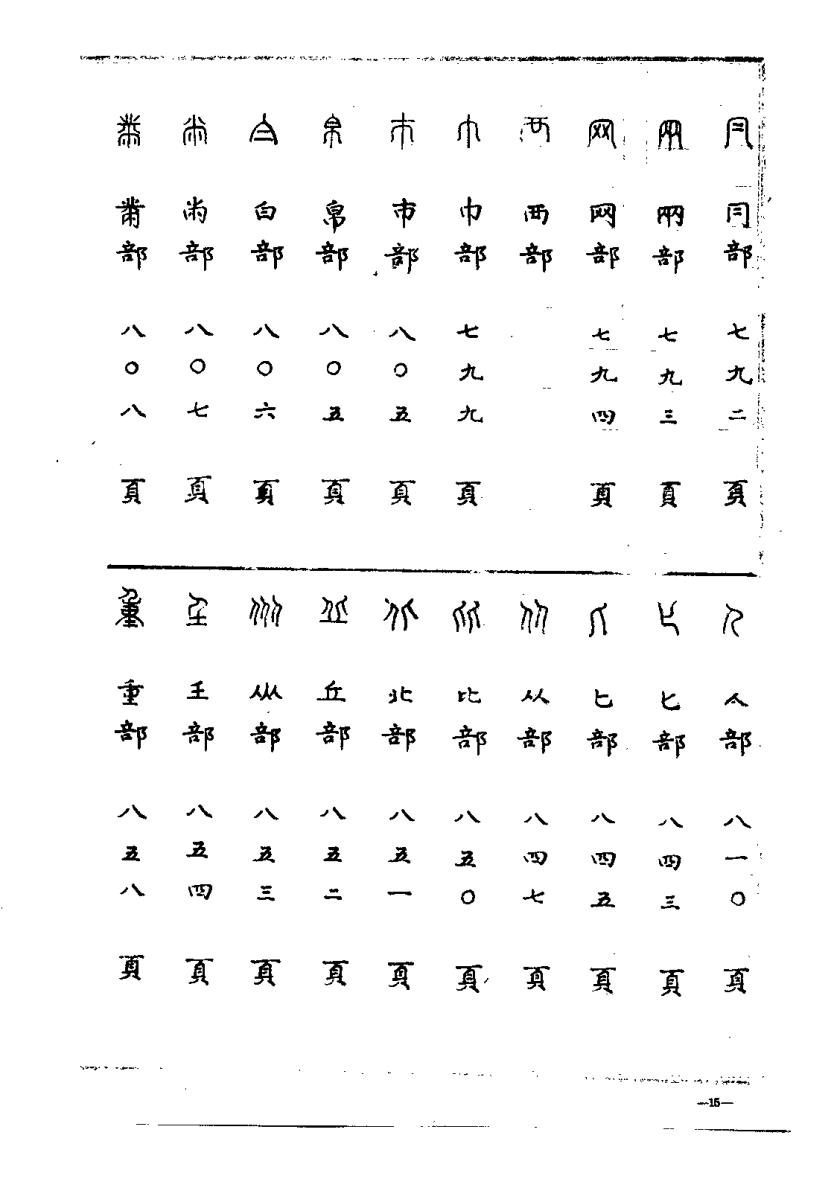 冃部 七九二頁
㒳部 七九三頁
网部 七九四頁
襾部
巾部 七九九頁
巿部 八〇五頁
帛部 八〇五頁
白部 八〇六頁
㡀部 八〇七頁
黹部 八〇八頁
人部 八一〇頁
匕部 八四三頁
匕部 八四五頁
从部 八四七頁
比部 八五〇頁
北部 八五一頁
丘部 八五二頁
㐺部 八五三頁
𡈼部 八五四頁
重部 八五八頁
—15—